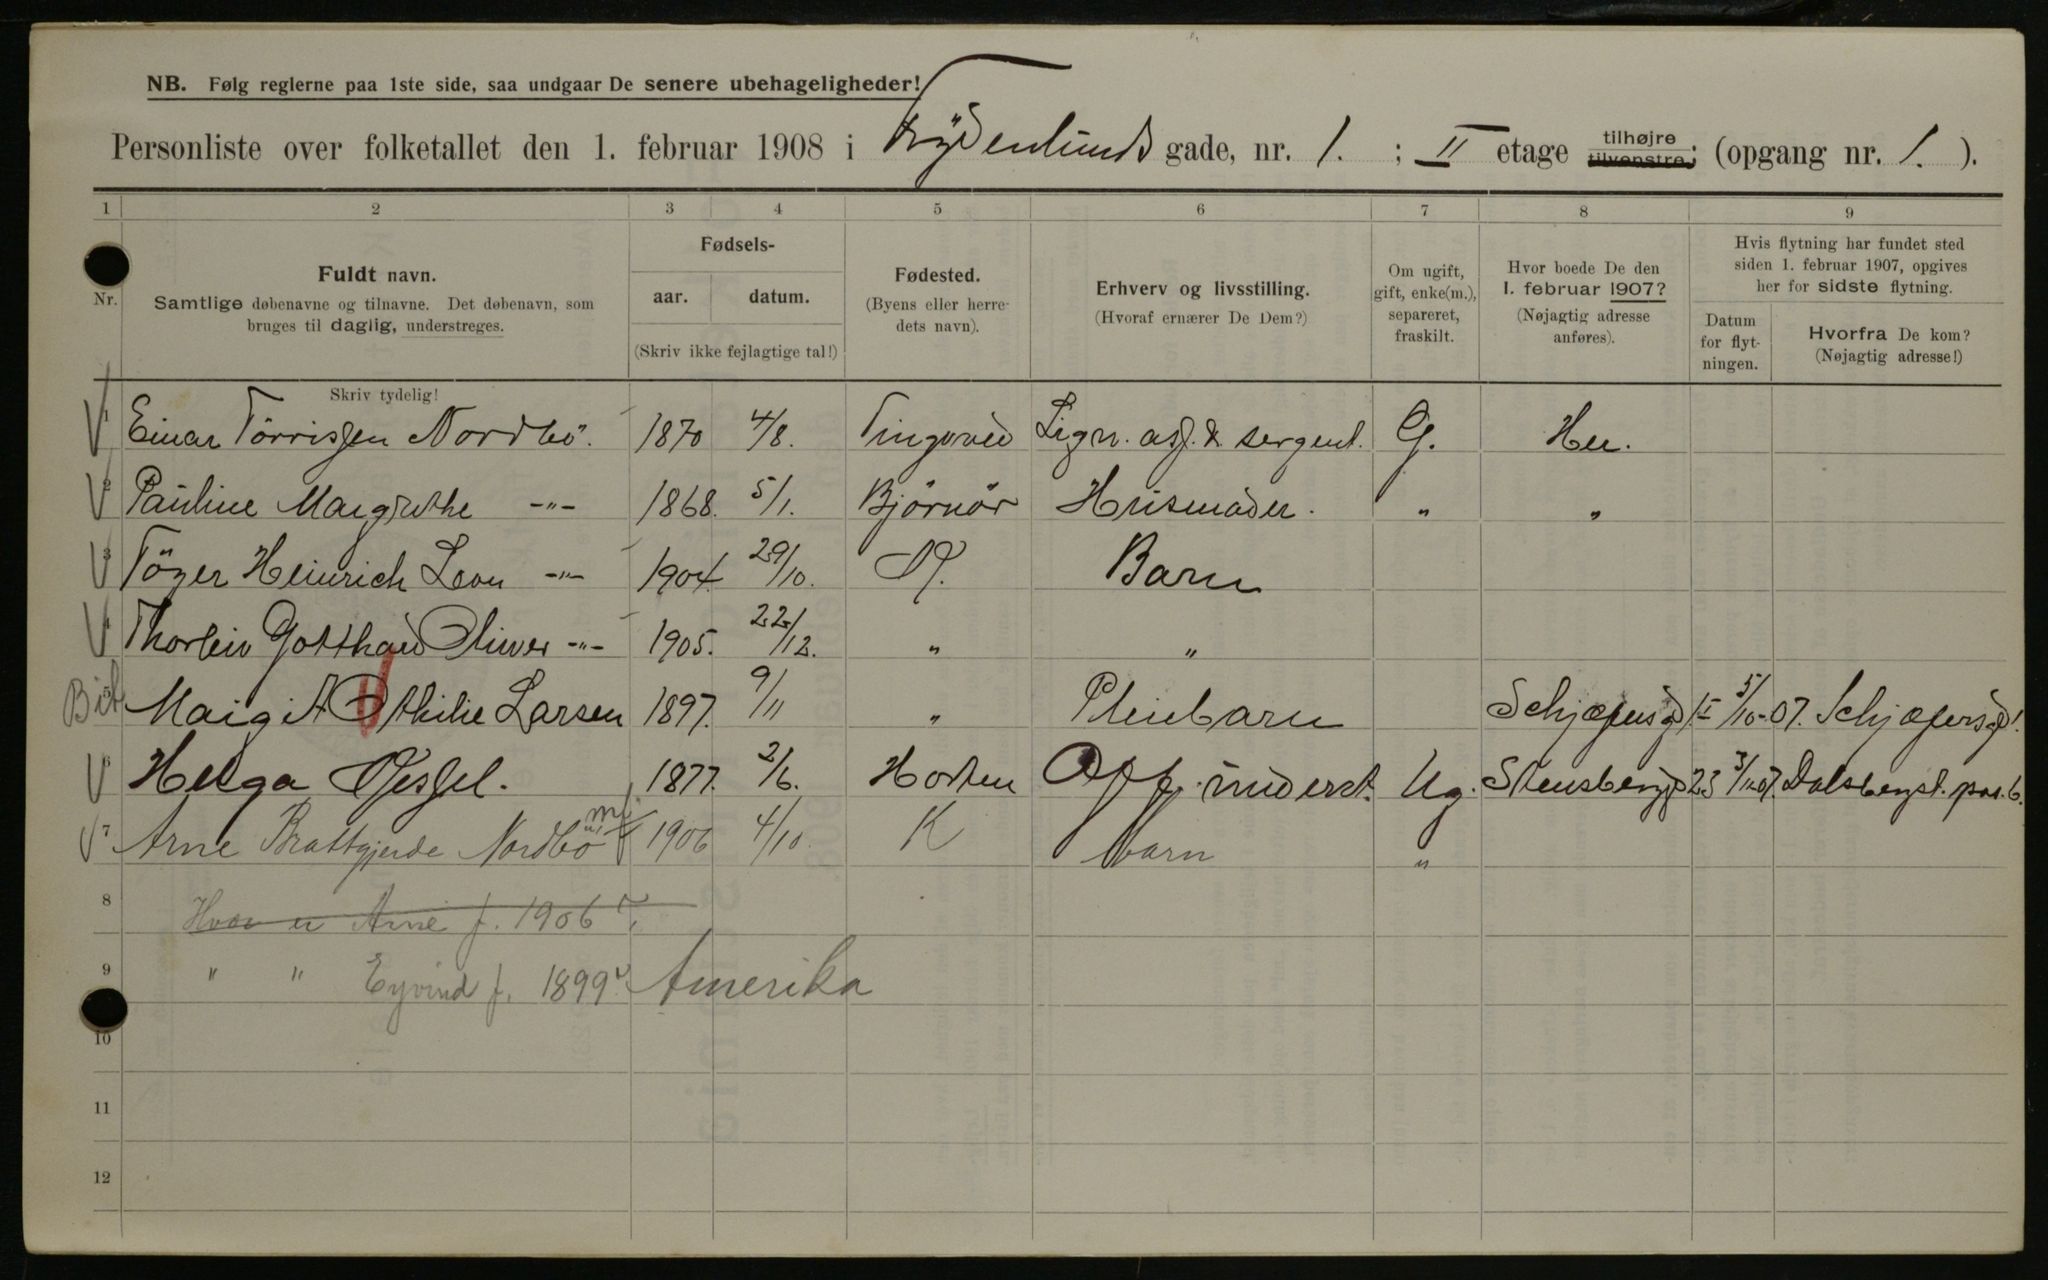 NB. Følg reglerne paa 1ste side, saa undgaar De senere ubehageligheder!
Personliste over folketallet den 1. februar 1908 i Frydenlunds gade, nr. 1. ; II etage tilhøjre tilvenstre; (opgang nr. 1. ).
1 2 3 4 5 6 7 8 9
Nr.
Fuldt navn.
Samtlige døbenavne og tilnavne. Det døbenavn, som
bruges til daglig, understreges.
Skriv tydelig!
Fødsels-
aar. datum.
(Skriv ikke fejlagtige tal!)
Fødested.
(Byens eller herre-
dets navn).
Erhverv og livsstilling.
(Hvoraf ernærer De Dem?)
Om ugift,
gift, enke(m.),
separeret,
fraskilt.
Hvor boede De den
1. februar 1907?
(Nøjagtig adresse
anføres).
Hvis flytning har fundet sted
siden 1. februar 1907, opgives
her for sidste flytning.
Datum
for flyt-
ningen.
Hvorfra De kom?
(Nøjagtig adresse!)
1 Einar Törrissen Nordbö. 1870 4/8. Tingvold Lign. ass. & sergent. G. Her.
2 Pauline Margrethe -"- 1868. 5/1. Björnör Husmoder. " "
3 Heinrich Leon -"- 1904. 29/10. Barn
4 Thorleiv Gotthard Oliver -"- 1905. 22/12. " "
5 Margit Othilie Larsen 1897. 9/11 " Pleiebarn 5/10-07.
6 Helga Gessel. 1877. 2/6. Horten underst. Ug. Stensbergg 23 3/11-07. Dalsbergst.
7 Arne Brattgjerde Nordbö m 1906 4/10. K barn "
8 Hvor er Arne f. 1906?
9 " " Eyvind f. 1899? Amerika
10
11
12